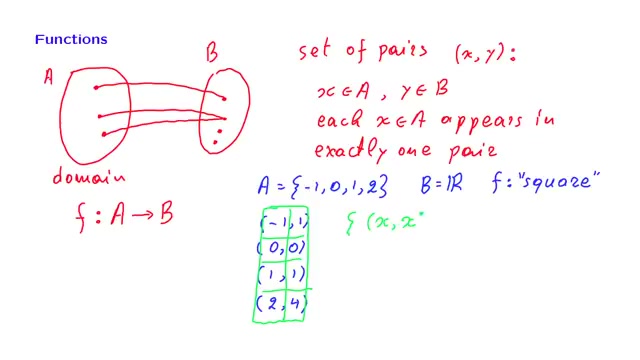 Functions
A
B
domain
f : A → B
set of pairs (x, y):
x ∈ A , y ∈ B
each x ∈ A appears in
exactly one pair
A = {-1, 0, 1, 2} B = ℝ f : "square"
(-1, 1)
(0, 0)
(1, 1)
(2, 4)
{ (x, x